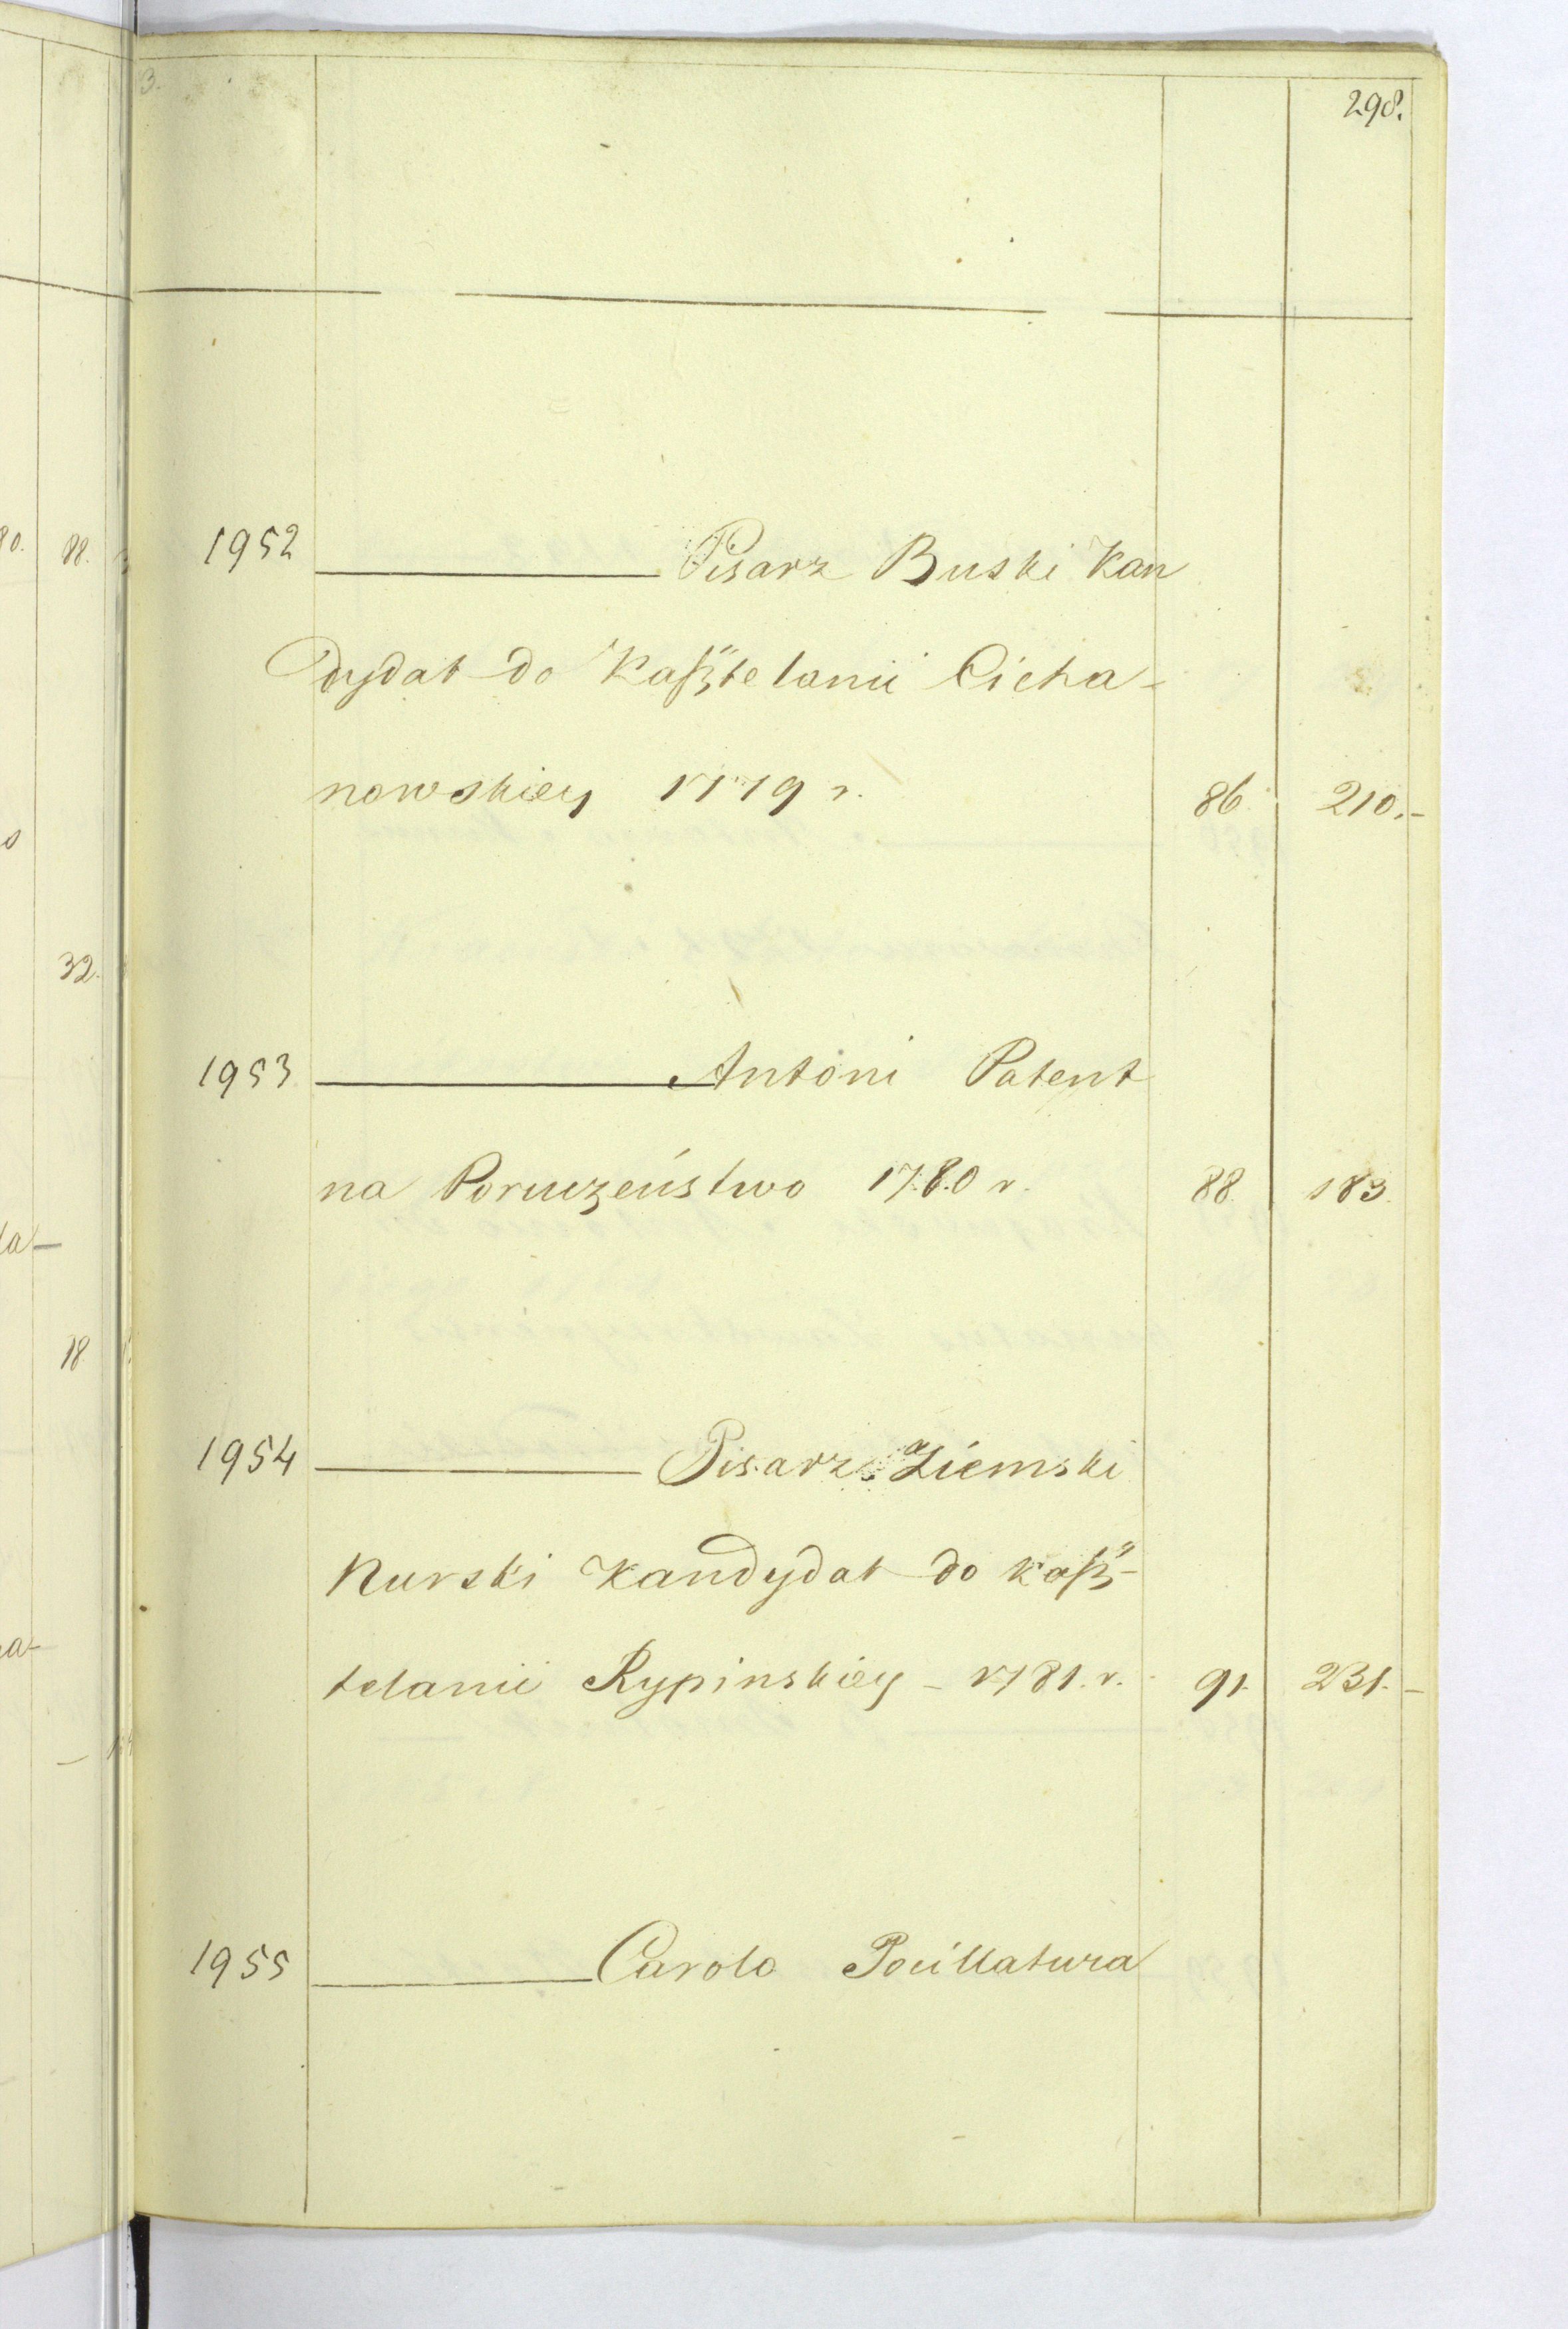 298.
1952 Pisarz Buski Kan
dydat do Kasztelanii Cicha-
nowskiey 1779 r. 86. 210.-
1953 Antoni Patent
na Poruczeństwo 1780 r. 88. 183.
1954 Pisarz Ziemski
Nurski Kandydat do Kasz-
telanii Rypinskiey - 1781. r. 91. 231.-
1955 Carolo
32.
18